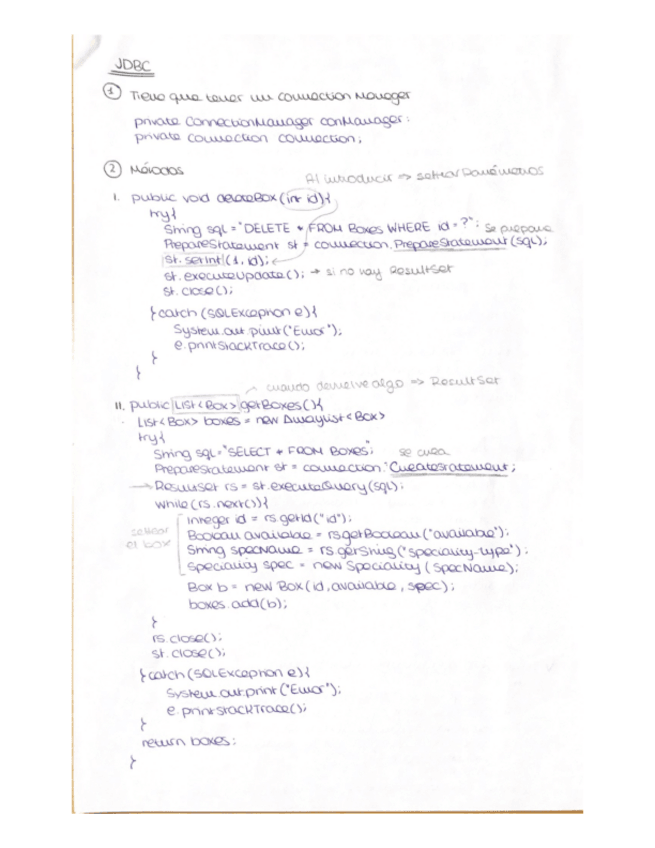 JDBC
① Tiene que tener un connection Manager
private ConnectionManager conManager;
private connection connection;
② Métodos
Al introducir => settear Parámetros
I. public void deleteBox(int id){
try{
String sql = "DELETE * FROM Boxes WHERE id = ?"; Se prepara
PrepareStatement st = connection.PrepareStatement(sql);
st.setInt(1, id);
st.executeUpdate(); → si no hay ResultSet
st.close();
}catch (SQLException e){
System.out.print("Error");
e.printStackTrace();
}
}
cuando devuelve algo => ResultSet
II. public List<Box> getBoxes(){
List<Box> boxes = new ArrayList<Box>
try{
String sql = "SELECT * FROM BOXES"; se crea
PrepareStatement st = connection.Createstatement;
→ ResultSet rs = st.executeQuery(sql);
while(rs.next()){
Integer id = rs.getId("id");
settear el box
Boolean available = rs.getBoolean("available");
String specName = rs.getString("speciality-type");
Speciality spec = new Speciality (specName);
Box b = new Box(id, available, spec);
boxes.add(b);
}
rs.close();
st.close();
}catch(SQLException e){
System.out.print("Error");
e.printStackTrace();
}
return boxes;
}